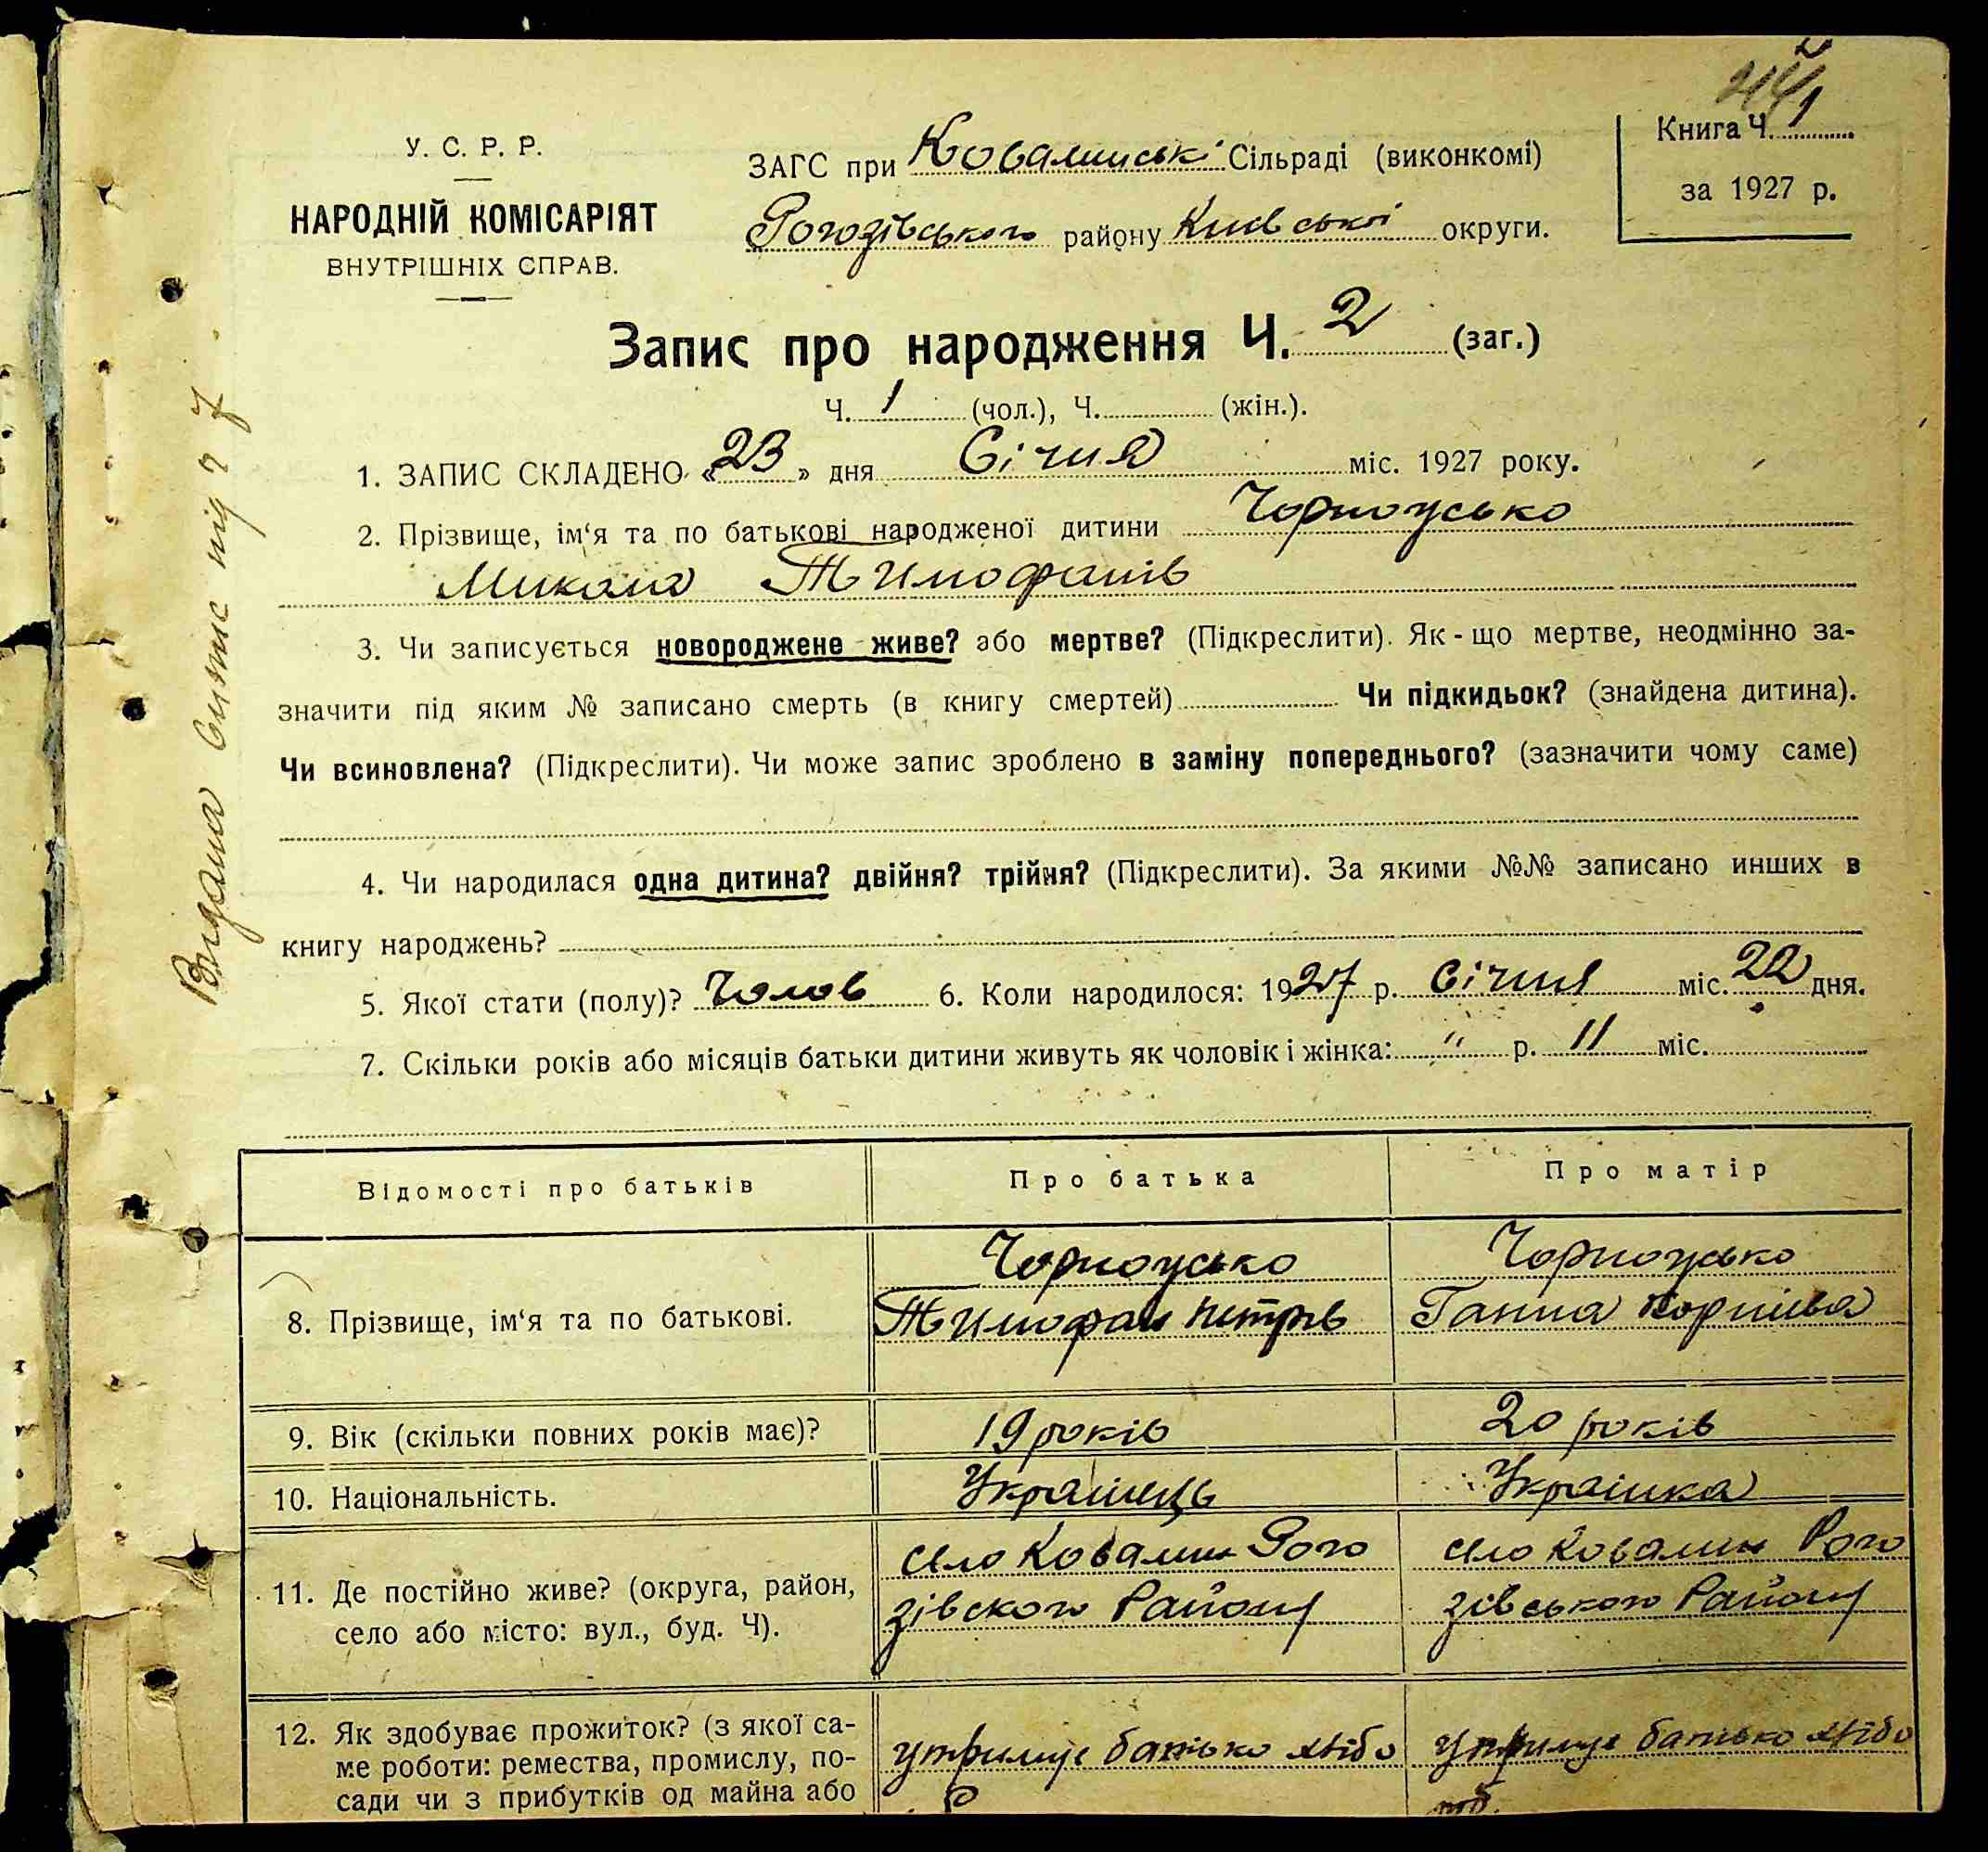 У. С. Р. Р.
НАРОДНІЙ КОМІСАРІЯТ
ВНУТРІШНІХ СПРАВ.
ЗАГС при Ковалинські Сільраді (виконкомі)
Рогозівського району Київської округи.
Книга Ч. 1
за 1927 р.
Запис про народження Ч. 2 (заг.)
Ч. 1 (чол.), Ч. (жін.).
1. ЗАПИС СКЛАДЕНО «23» дня Січня міс. 1927 року.
2. Прізвище, ім‘я та по батькові народженої дитини Чорноусько
Микола Тимофаів
3. Чи записується новороджене живе? або мертве? (Підкреслити). Як-що мертве, неодмінно за-
значити під яким № записано смерть (в книгу смертей) Чи підкидьок? (знайдена дитина).
Чи всиновлена? (Підкреслити). Чи може запис зроблено в заміну попереднього? (зазначити чому саме)
4. Чи народилася одна дитина? двійня? трійня? (Підкреслити). За якими №№ записано инших в
книгу народжень?
5. Якої стати (полу)? Чолов 6. Коли народилося: 1927 р. Січня міс. 22 дня.
7. Скільки років або місяців батьки дитини живуть як чоловік і жінка: " р. 11 міс.
Відомості про батьків Про батька Про матір
8. Прізвище, ім‘я та по батькові.
Чорноусько
Тимофаи Петрів
Чорноусько
Ганна Корнієва
9. Вік (скільки повних років має)? 19 років 20 років
10. Національність. Українець Українка
11. Де постійно живе? (округа, район,
село або місто: вул., буд. Ч).
село Ковалин Рого
зівского Району
село Ковалин Рого
зівського Району
12. Як здобуває прожиток? (з якої са-
ме роботи: ремества, промислу, по-
сади чи з прибутків од майна або
утримує батько хлібо
утримує батько хлібо
Видана